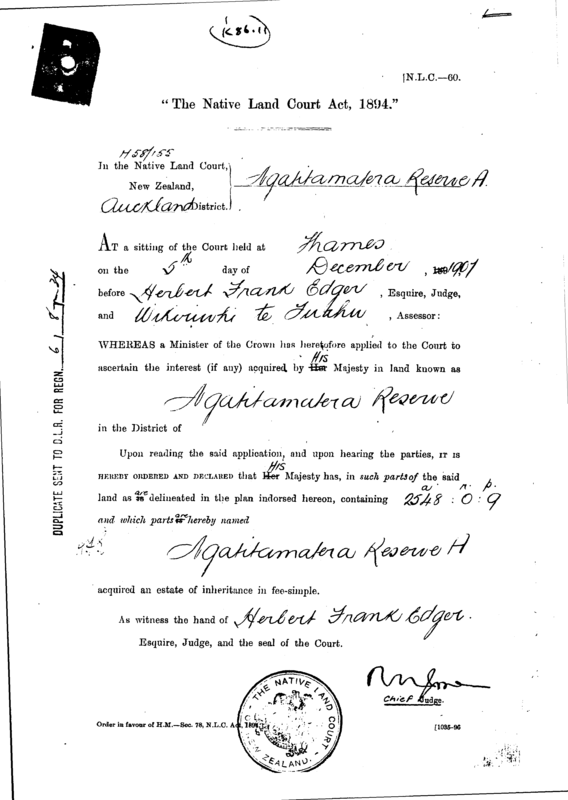 K86.11
[N.L.C.—60.
"The Native Land Court Act, 1894."
H 58/155
In the Native Land Court,
New Zealand,
Auckland District.
Ngatitamatera Reserve A.
At a sitting of the Court held at Thames
on the 5th day of December, 1901
before Herbert Frank Edger, Esquire, Judge,
and te, Assessor:
WHEREAS a Minister of the Crown has heretofore applied to the Court to
ascertain the interest (if any) acquired by Her His Majesty in land known as
Ngatitamatera Reserve
in the District of
Upon reading the said application, and upon hearing the parties, IT IS
HEREBY ORDERED AND DECLARED that Her His Majesty has, in such parts of the said
a. r. p.
land as is are delineated in the plan indorsed hereon, containing 2548 : 0 : 9
and which parts is are hereby named
Ngatitamatera Reserve A
acquired an estate of inheritance in fee-simple.
As witness the hand of Herbert Frank Edger.
Esquire, Judge, and the seal of the Court.
Chief Judge.
THE NATIVE LAND COURT NEW ZEALAND.
Order in favour of H.M.—Sec. 78, N.L.C. Act, 1894.
[1035-96
DUPLICATE SENT TO D.L.R. FOR REGN.